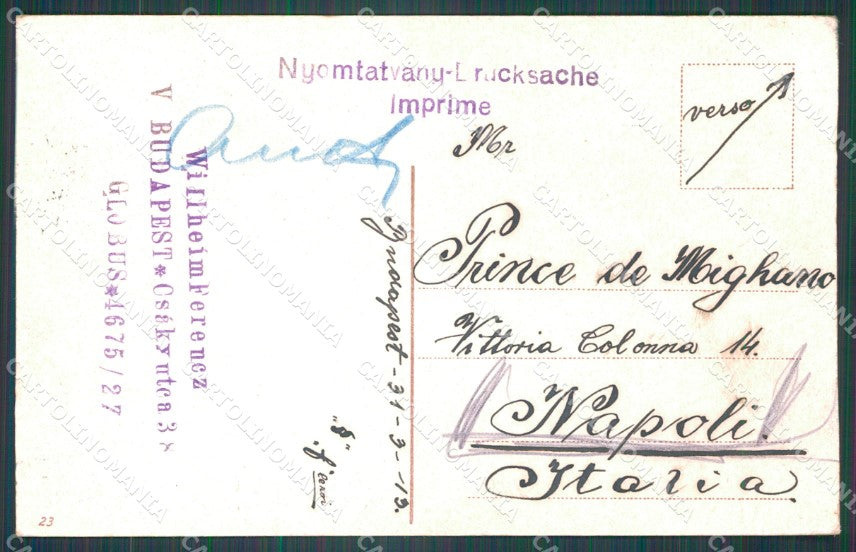 Nyomtatvány-Drucksache
Imprime
verso
Mr
Prince de Mighano
Vittoria Colonna 14.
Napoli.
Italia.
Willheim Ferencz
V BUDAPEST*Csáky utca 38
GLOBUS*4675/27
Budapest-31-3-13.
23
CARTOLINOMANIA